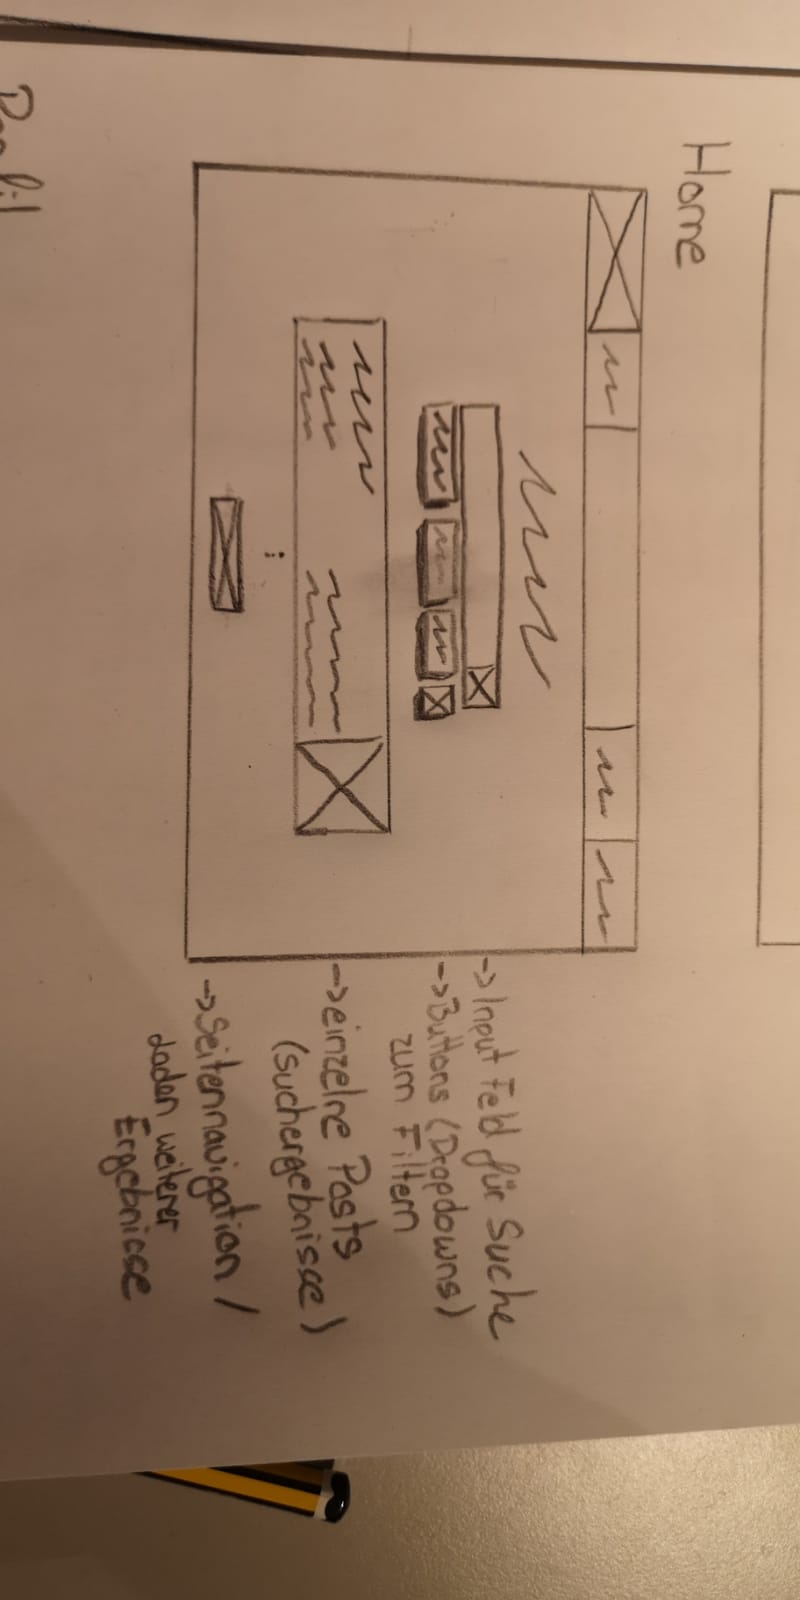 Home
-> Input Feld für Suche
-> Buttons (Dropdowns)
zum Filtern
-> einzelne Posts
(suchergebnisse)
-> Seitennavigation /
Laden weiterer
Ergebnisse
Profil